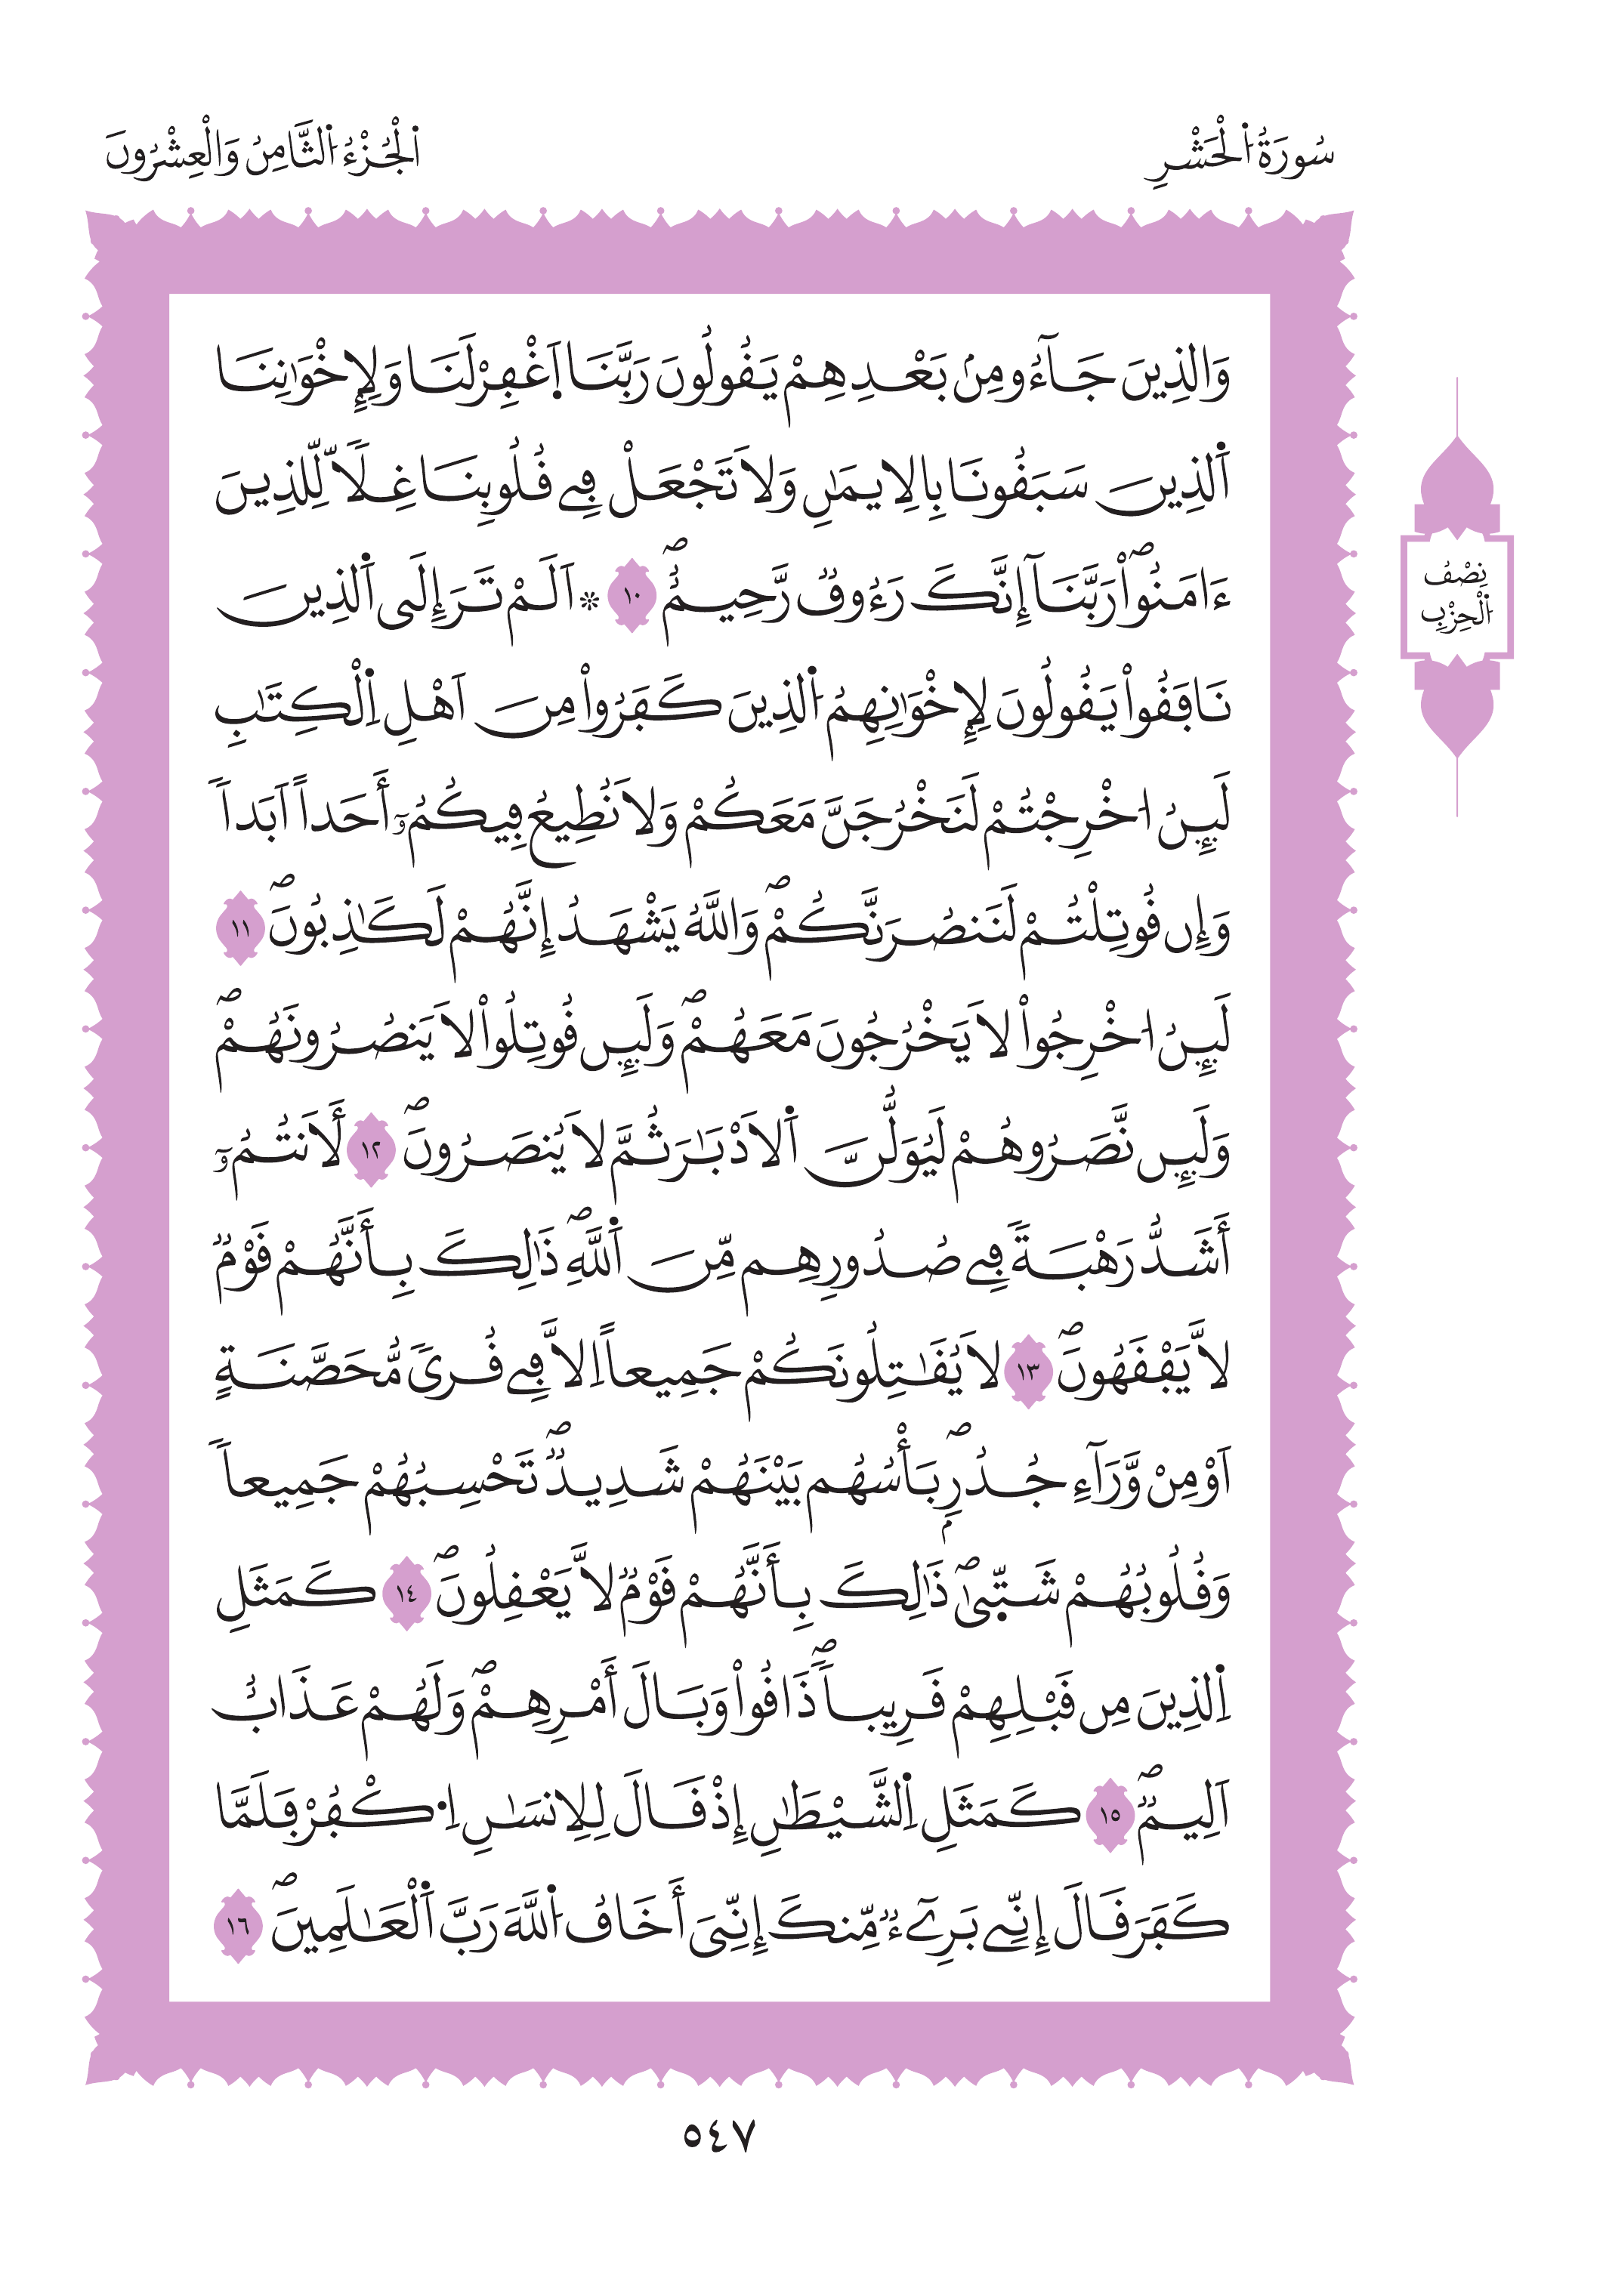 سُورَةُ اُ۬لْحَشْرِ
اَ۬لْجُزْءُ اُ۬لثَّامِنُ وَالْعِشْرُونَ
وَالذِينَ جَآءُو مِنۢ بَعْدِهِمْ يَقُولُونَ رَبَّنَا اَ۪غْفِرْ لَنَا وَلِإِخْوَٰنِنَا
اَ۬لذِينَ سَبَقُونَا بِالِايمَٰنِ وَلَا تَجْعَلْ فِے قُلُوبِنَا غِلّاٗ لِّلذِينَ
ءَامَنُواْۖ رَبَّنَآ إِنَّكَ رَءُوفٞ رَّحِيمٌۖ ١٠ ۞ اَلَمْ تَرَ إِلَى اَ۬لذِينَ
نَافَقُواْ يَقُولُونَ لِإِخْوَٰنِهِمُ اُ۬لذِينَ كَفَرُواْ مِنَ اَهْلِ اِ۬لْكِتَٰبِ
لَئِنُ ا۟خْرِجْتُمْ لَنَخْرُجَنَّ مَعَكُمْ وَلَا نُطِيعُ فِيكُمُۥٓ أَحَداً اَبَداٗ
وَإِن قُوتِلْتُمْ لَنَنصُرَنَّكُمْۖ وَاللَّهُ يَشْهَدُ إِنَّهُمْ لَكَٰذِبُونَۖ ١١
لَئِنُ ا۟خْرِجُواْ لَا يَخْرُجُونَ مَعَهُمْۖ وَلَئِن قُوتِلُواْ لَا يَنصُرُونَهُمْۖ
وَلَئِن نَّصَرُوهُمْ لَيُوَلُّنَّ اَ۬لَادْبَٰرَ ثُمَّ لَا يُنصَرُونَۖ ١٢ لَأَنتُمُۥٓ
أَشَدُّ رَهْبَةٗ فِے صُدُورِهِم مِّنَ اَ۬للَّهِۖ ذَٰلِكَ بِأَنَّهُمْ قَوْمٞ
لَّا يَفْقَهُونَۖ ١٣ لَا يُقَٰتِلُونَكُمْ جَمِيعاً اِلَّا فِے قُرىٗ مُّحَصَّنَةٍ
اَوْ مِنْ وَّرَآءِ جُدُرِۢۖ بَأْسُهُم بَيْنَهُمْ شَدِيدٞۖ تَحْسِبُهُمْ جَمِيعاٗ
وَقُلُوبُهُمْ شَتّ۪ىٰۖ ذَٰلِكَ بِأَنَّهُمْ قَوْمٞ لَّا يَعْقِلُونَۖ ١٤ كَمَثَلِ
اِ۬لذِينَ مِن قَبْلِهِمْ قَرِيباٗۖ ذَاقُواْ وَبَالَ أَمْرِهِمْۖ وَلَهُمْ عَذَابٌ
اَلِيمٞۖ ١٥ كَمَثَلِ اِ۬لشَّيْطَٰنِ إِذْ قَالَ لِلِانسَٰنِ اِ۟كْفُرْ فَلَمَّا
كَفَرَ قَالَ إِنِّے بَرِےٓءٞ مِّنكَ إِنِّيَ أَخَافُ اُ۬للَّهَ رَبَّ اَ۬لْعَٰلَمِينَۖ ١٦
نِصْفُ
اُ۬لْحِزْبِ
٥٤٧